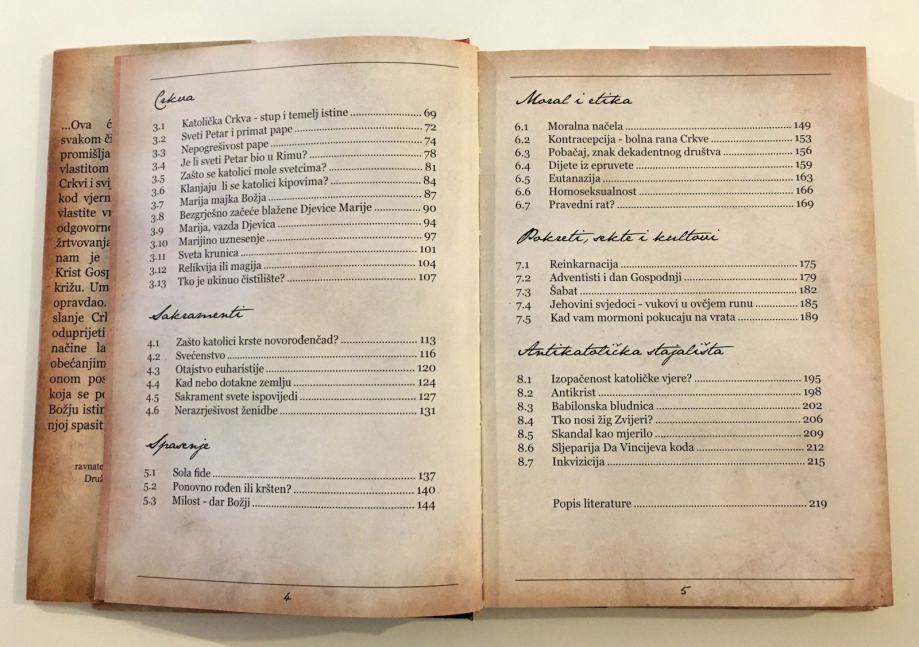 ...Ova
svakom
promišlja
vlastitom
Crkvi i
kod
vlastite
odgovorno
žrtvovanja
nam je
Krist
križu. Um
opravdao.
slanje
oduprijeti
načine la
obećanjim
onom pos
koja se
Božju istin
njoj spasit
ravnate
Druš
Crkva
3.1 Katolička Crkva - stup i temelj istine 69
3.2 Sveti Petar i primat pape 72
3.3 Nepogrešivost pape 74
3.4 Je li sveti Petar bio u Rimu? 78
3.5 Zašto se katolici mole svetcima? 81
3.6 Klanjaju li se katolici kipovima? 84
3.7 Marija majka Božja 87
3.8 Bezgrješno začeće blažene Djevice Marije 90
3.9 Marija, vazda Djevica 94
3.10 Marijino uznesenje 97
3.11 Sveta krunica 101
3.12 Relikvija ili magija 104
3.13 Tko je ukinuo čistilište? 107
Sakramenti
4.1 Zašto katolici krste novorođenčad? 113
4.2 Svećenstvo 116
4.3 Otajstvo euharistije 120
4.4 Kad nebo dotakne zemlju 124
4.5 Sakrament svete ispovijedi 127
4.6 Nerazrješivost ženidbe 131
Spasenje
5.1 Sola fide 137
5.2 Ponovno rođen ili kršten? 140
5.3 Milost - dar Božji 144
4
Moral i etika
6.1 Moralna načela 149
6.2 Kontracepcija - bolna rana Crkve 153
6.3 Pobačaj, znak dekadentnog društva 156
6.4 Dijete iz epruvete 159
6.5 Eutanazija 163
6.6 Homoseksualnost 166
6.7 Pravedni rat? 169
Pokreti, sekte i kultovi
7.1 Reinkarnacija 175
7.2 Adventisti i dan Gospodnji 179
7.3 Šabat 182
7.4 Jehovini svjedoci - vukovi u ovčjem runu 185
7.5 Kad vam mormoni pokucaju na vrata 189
Antikatolička stajališta
8.1 Izopačenost katoličke vjere? 195
8.2 Antikrist 198
8.3 Babilonska bludnica 202
8.4 Tko nosi žig Zvijeri? 206
8.5 Skandal kao mjerilo 209
8.6 Sljeparija Da Vincijeva koda 212
8.7 Inkvizicija 215
Popis literature 219
5